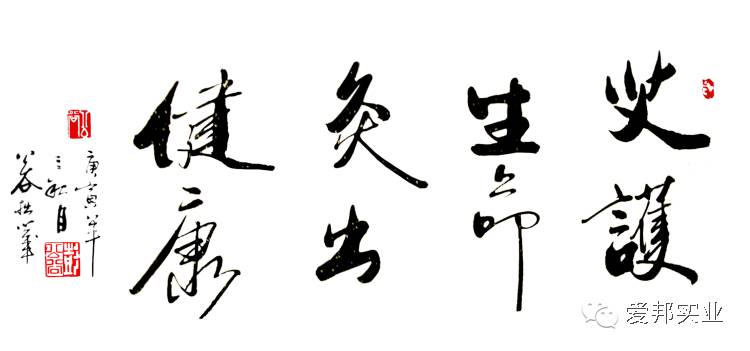 艾護
生命
灸出
健康
庚寅年
爱邦实业